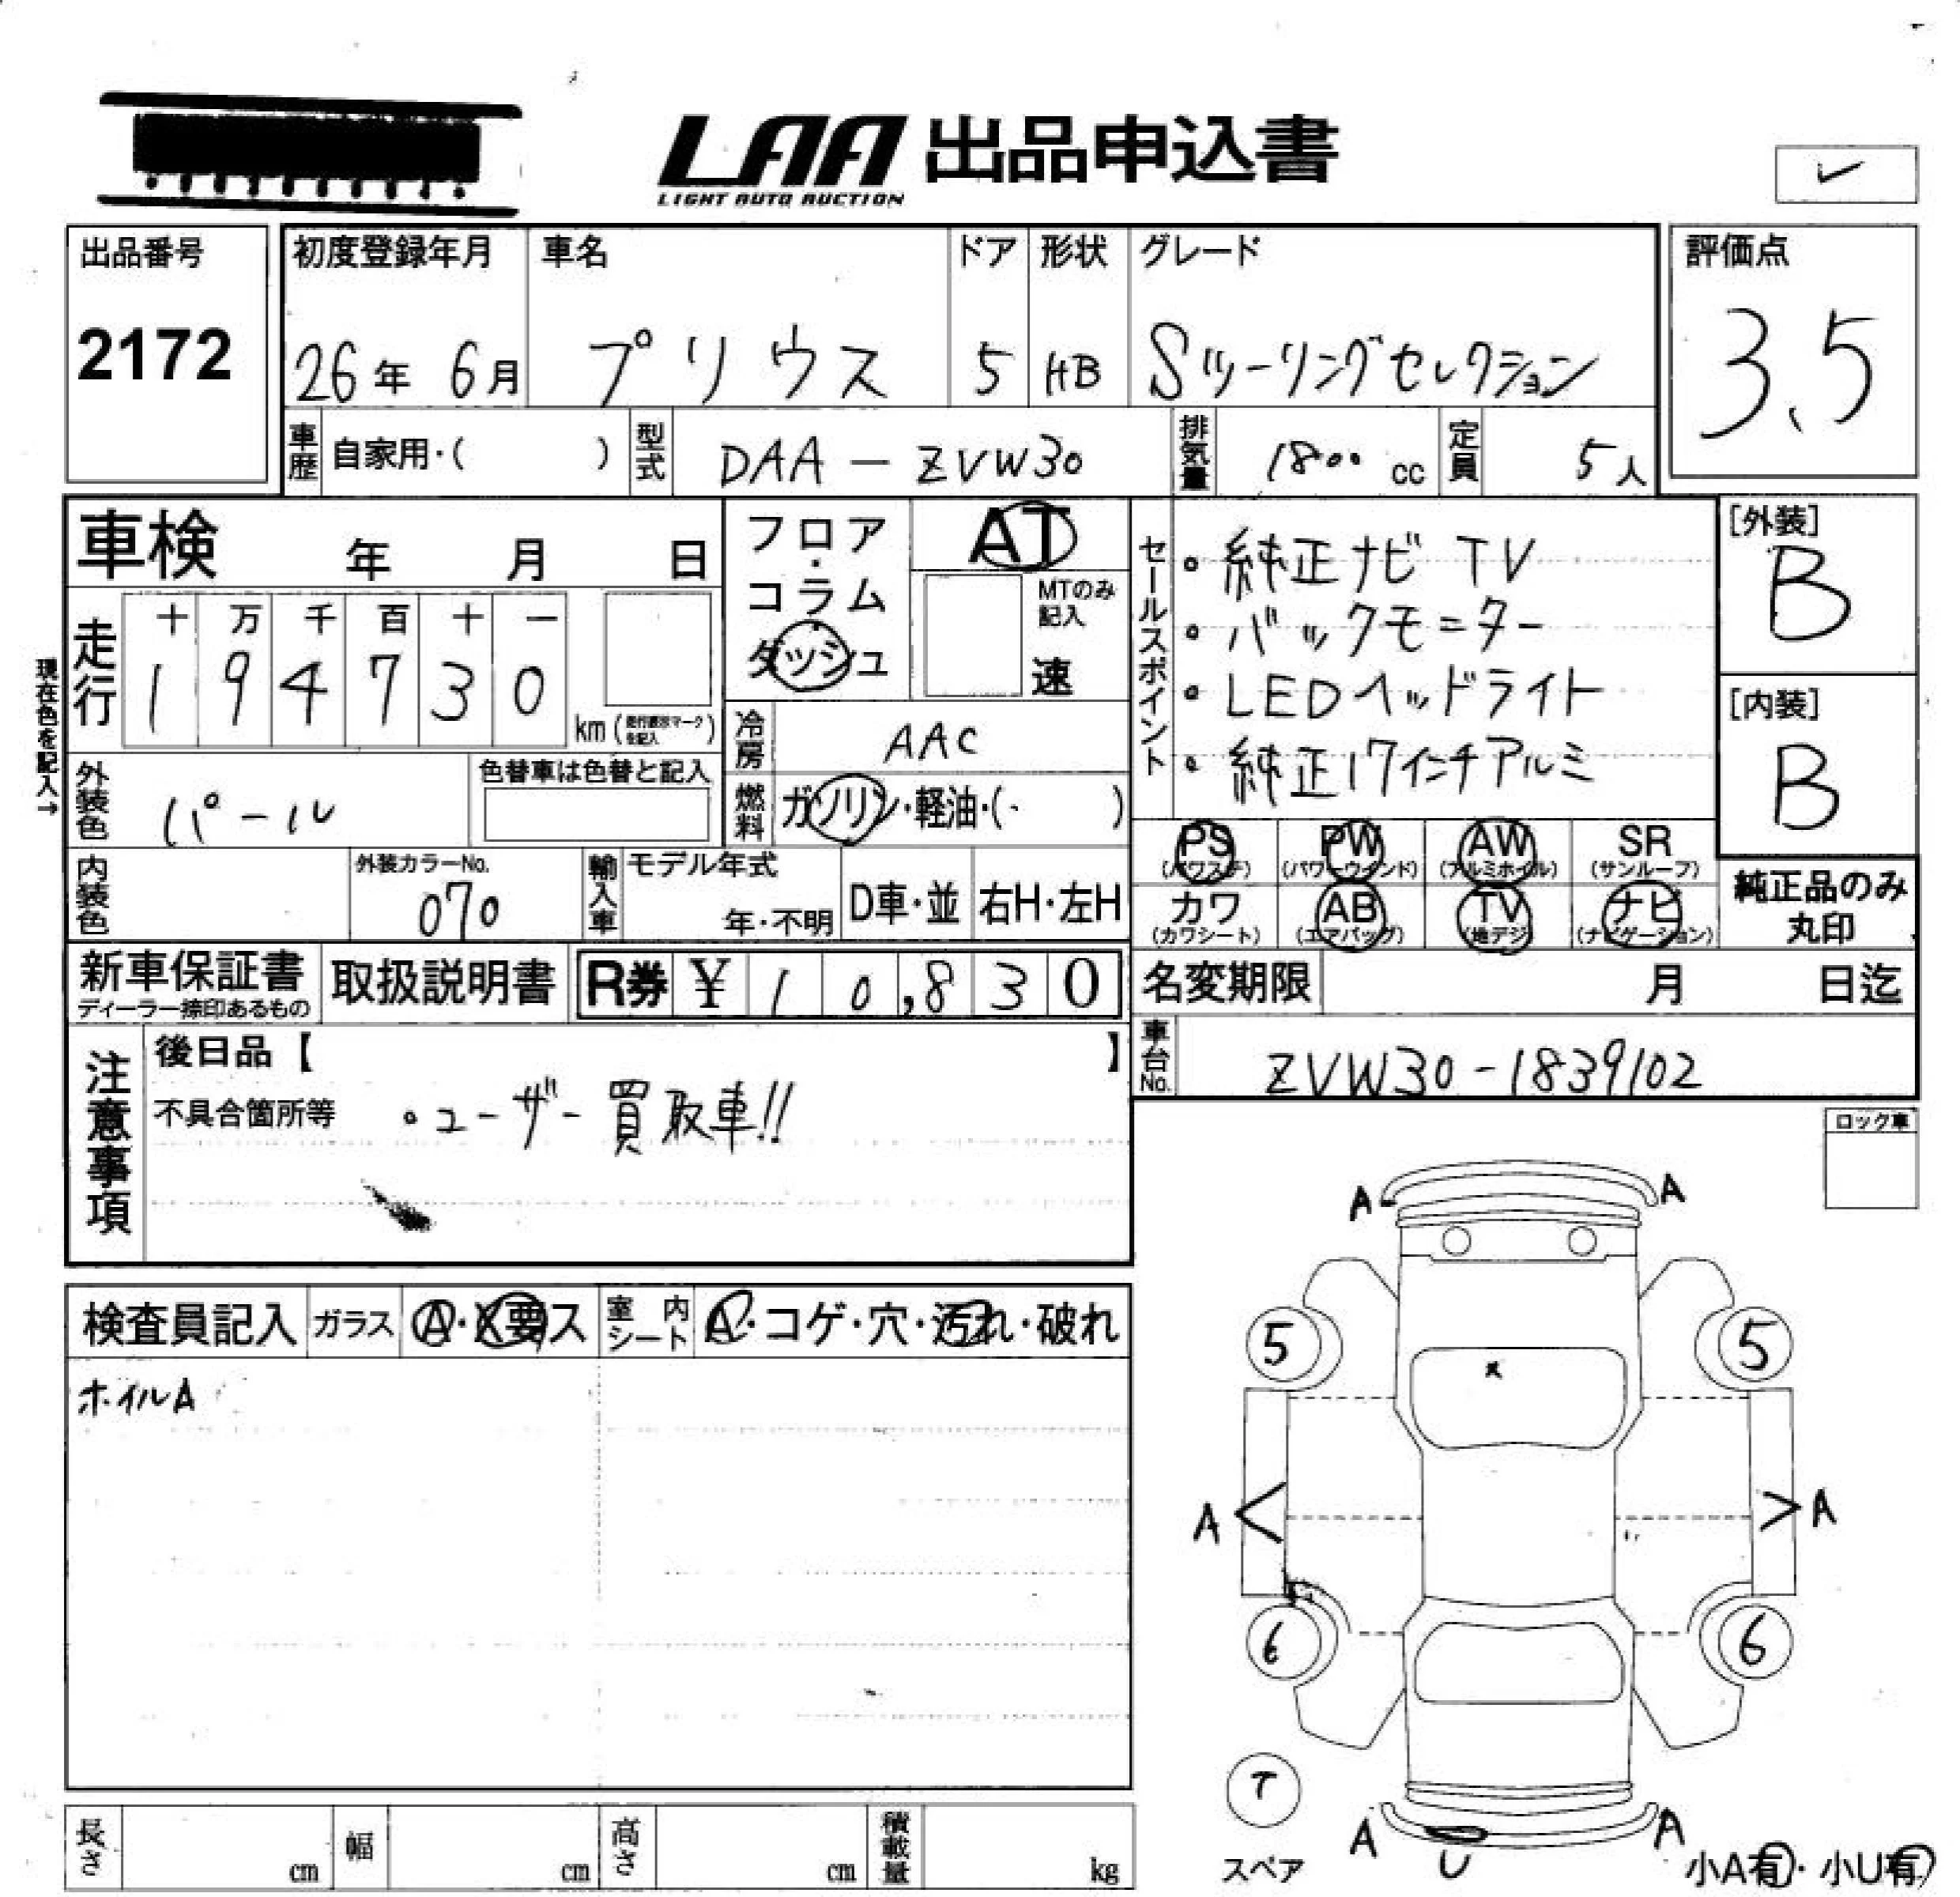 LAA 出品申込書
LIGHT AUTO AUCTION
出品番号
2172
初度登録年月 車名 ドア 形状 グレード
26年 6月 プリウス 5 HB Sツーリングセレクション
評価点
3.5
車歴 自家用・( ) 型式 DAA-ZVW30 排気量 1800 cc 定員 5人
車検 年 月 日
フロア・コラム・ダッシュ
AT
MTのみ記入
速
現在色を記入→
走行
十 万 千 百 十 一
1 9 4 7 3 0
km(走行表示マークを記入)
冷房 AAC
外装色 パール
色替車は色替と記入
燃料 ガソリン・軽油・( )
内装色
外装カラーNo.
070
輸入車 モデル年式
年・不明
D車・並 右H・左H
セールスポイント
・純正ナビ TV
・バックモニター
・LEDヘッドライト
・純正17インチアルミ
[外装]
B
[内装]
B
PS (パワステ) PW (パワーウインド) AW (アルミホイル) SR (サンルーフ)
カワ (カワシート) AB (エアバッグ) TV (地デジ) ナビ (ナビゲーション)
純正品のみ
丸印
新車保証書
ディーラー捺印あるもの
取扱説明書
R券 ¥ 10,830
名変期限 月 日迄
車台No. ZVW30-1839102
注意事項
後日品【 】
不具合箇所等 ・ユーザー買取車!!
ロック車
検査員記入 ガラス A・X要ス 室内シート A・コゲ・穴・汚れ・破れ
ホイルA
A A
5 5
x
A A
6 6
T
スペア
A U A
小A有・小U有
長さ cm 幅 cm 高さ cm 積載量 kg